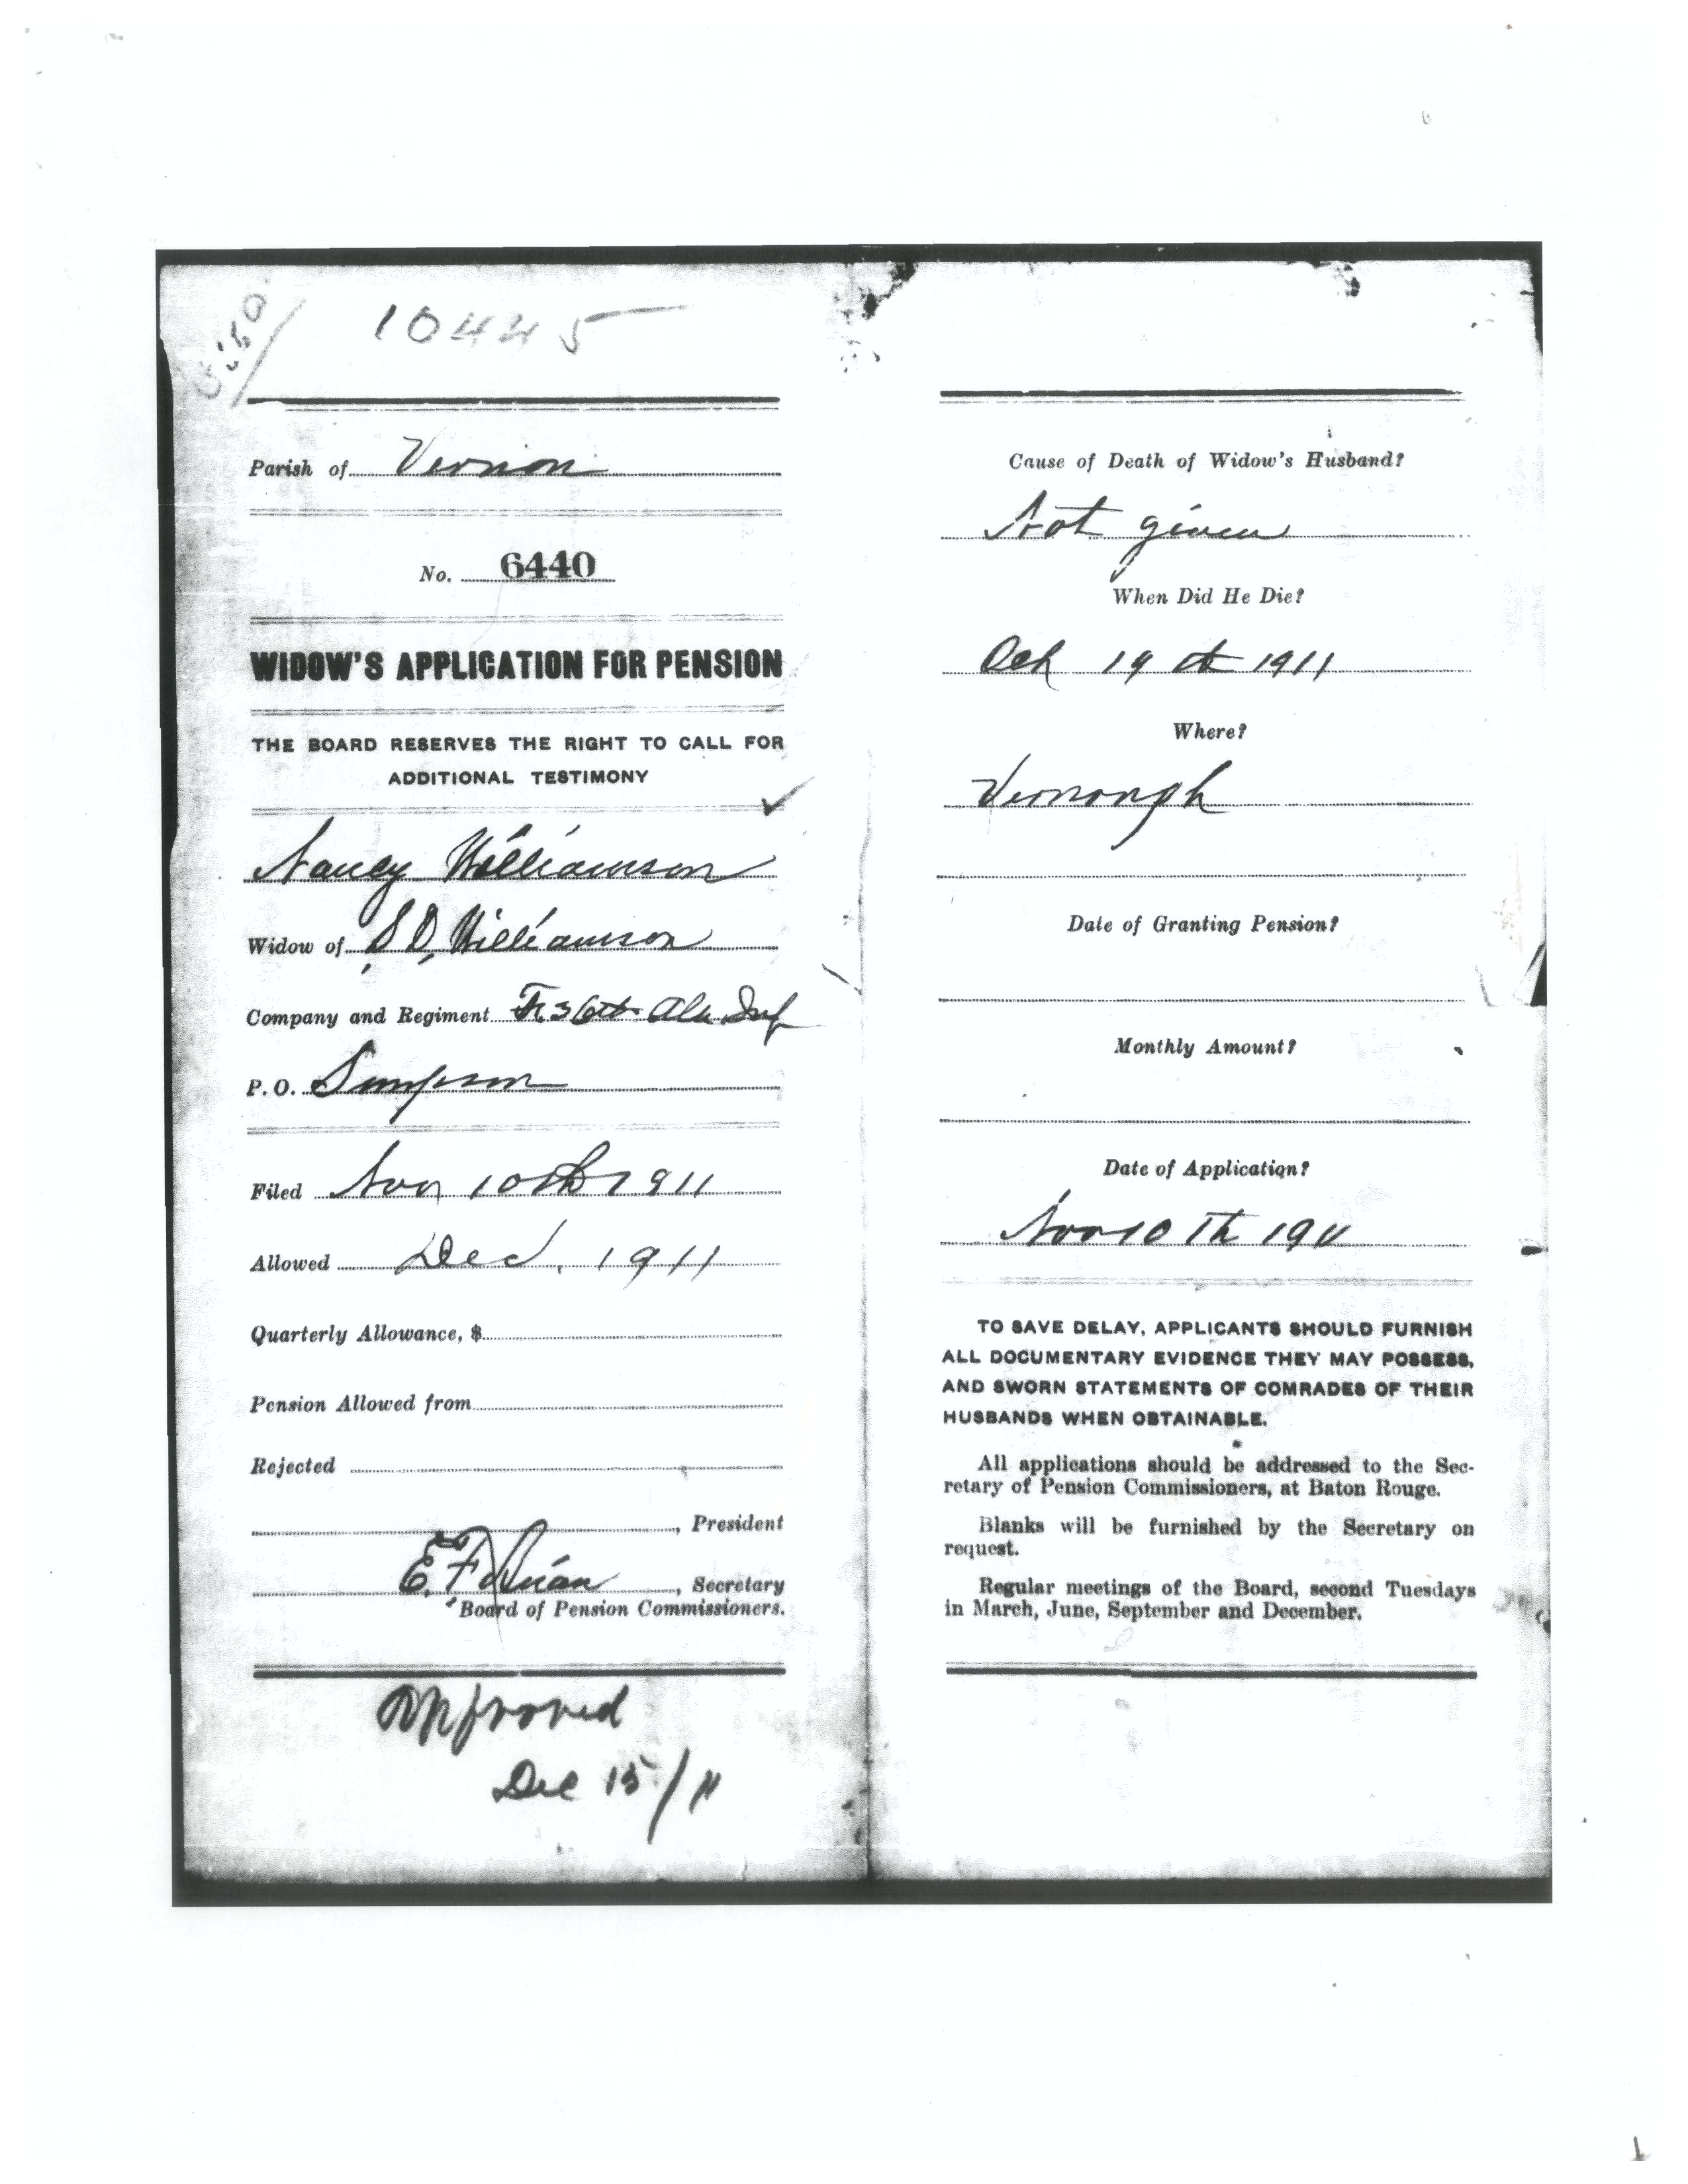 10445
Parish of Vernon
No. 6440
WIDOW'S APPLICATION FOR PENSION
THE BOARD RESERVES THE RIGHT TO CALL FOR
ADDITIONAL TESTIMONY
Nancy Williamson
Widow of S. D. Williamson
Company and Regiment F. 36th Ala Inf
P. O. Simpson
Filed Nov 10th 1911
Allowed Dec. 1911
Quarterly Allowance, $
Pension Allowed from
Rejected
, President
, Secretary
Board of Pension Commissioners.
Approved
Dec 15/11
Cause of Death of Widow's Husband?
Not given
When Did He Die?
Oct 19th 1911
Where?
Vernon ph
Date of Granting Pension?
Monthly Amount?
Date of Application?
Nov 10 Th 1911
TO SAVE DELAY, APPLICANTS SHOULD FURNISH
ALL DOCUMENTARY EVIDENCE THEY MAY POSSESS,
AND SWORN STATEMENTS OF COMRADES OF THEIR
HUSBANDS WHEN OBTAINABLE.
All applications should be addressed to the Sec-
retary of Pension Commissioners, at Baton Rouge.
Blanks will be furnished by the Secretary on
request.
Regular meetings of the Board, second Tuesdays
in March, June, September and December.